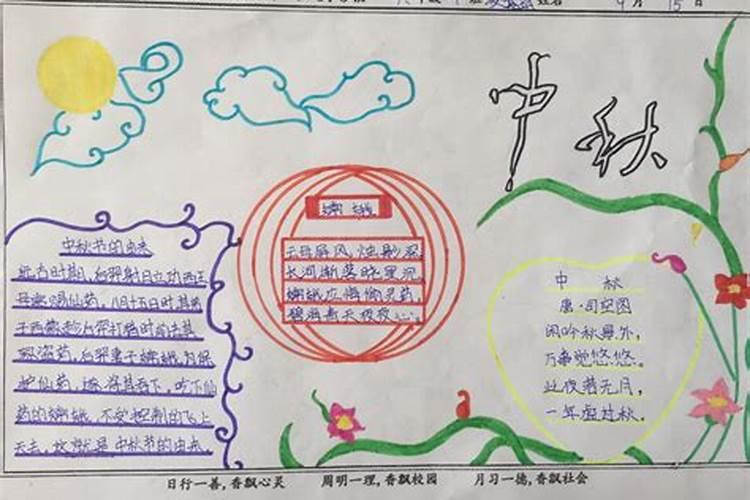 9月15日
中秋
中秋节的由来
远古时期,后羿射日立功西王
母娘娘赐仙药,八月十五日时其弟
子西蒙趁后羿打腊时前去其
家盗药,后羿妻子嫦娥为保
护仙药,
药的嫦娥,不受控制的飞上
天去,这就是中秋节的由来
嫦娥
云母屏风,烛影深,
长河渐落晓星沉,
嫦娥应悔偷灵药,
碧海青天夜夜心。
中秋
唐·司空图
闲吟秋景外,
万事觉悠悠。
此夜若无月,
一年虚过秋。
日行一善,香飘心灵 周明一理,香飘校园 月习一德,香飘社会